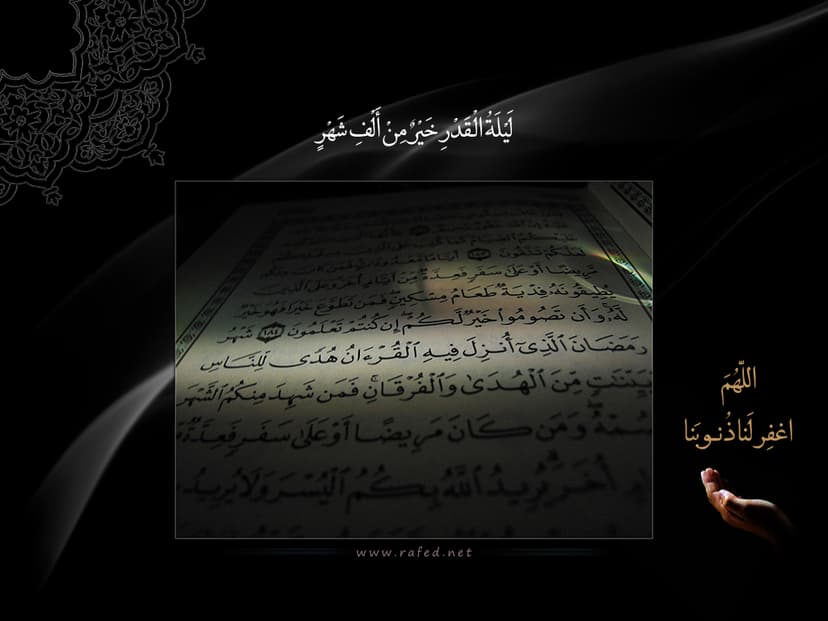 لَيْلَةُ الْقَدْرِ خَيْرٌ مِنْ أَلْفِ شَهْرٍ
لَعَلَّكُمْ تَتَّقُونَ ١٨٣ أَيَّامًا مَعْدُودَاتٍ فَمَن كَانَ مِنكُم
مَّرِيضًا أَوْ عَلَىٰ سَفَرٍ فَعِدَّةٌ مِّنْ أَيَّامٍ أُخَرَ وَعَلَى الَّذِينَ
يُطِيقُونَهُ فِدْيَةٌ طَعَامُ مِسْكِينٍ فَمَن تَطَوَّعَ خَيْرًا فَهُوَ خَيْرٌ
لَّهُ وَأَن تَصُومُوا خَيْرٌ لَّكُمْ إِن كُنتُمْ تَعْلَمُونَ ١٨٤ شَهْرُ
رَمَضَانَ ٱلَّذِىٓ أُنزِلَ فِيهِ ٱلْقُرْءَانُ هُدًى لِّلنَّاسِ
بَيِّنَٰتٍ مِّنَ ٱلْهُدَىٰ وَٱلْفُرْقَانِ ۚ فَمَن شَهِدَ مِنكُمُ ٱلشَّهْرَ
وَمَن كَانَ مَرِيضًا أَوْ عَلَىٰ سَفَرٍ فَعِدَّةٌ
أُخَرَ يُرِيدُ ٱللَّهُ بِكُمُ ٱلْيُسْرَ وَلَا يُرِيدُ
اللّٰهُمَ
اغفِر لَنا ذُنوبَنا
www.rafed.net